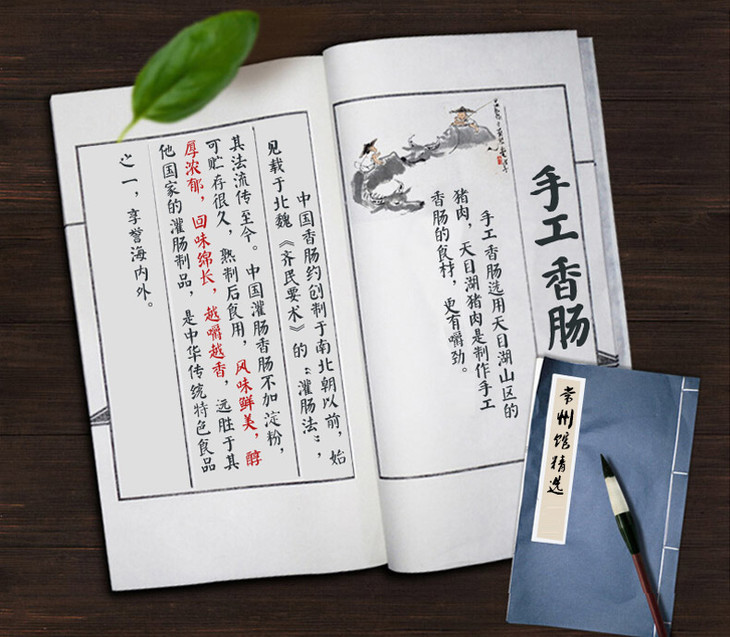 手工香肠
手工香肠选用天目湖山区的
猪肉，天目湖猪肉是制作手工
香肠的食材，更有嚼劲。
中国香肠约创制于南北朝以前，始
见载于北魏《齐民要术》的“灌肠法”，
其法流传至今。中国灌肠香肠不加淀粉，
可贮存很久，熟制后食用，风味鲜美，醇
厚浓郁，回味绵长，越嚼越香，远胜于其
他国家的灌肠制品，是中华传统特色食品
之一，享誉海内外。
常州馆精选